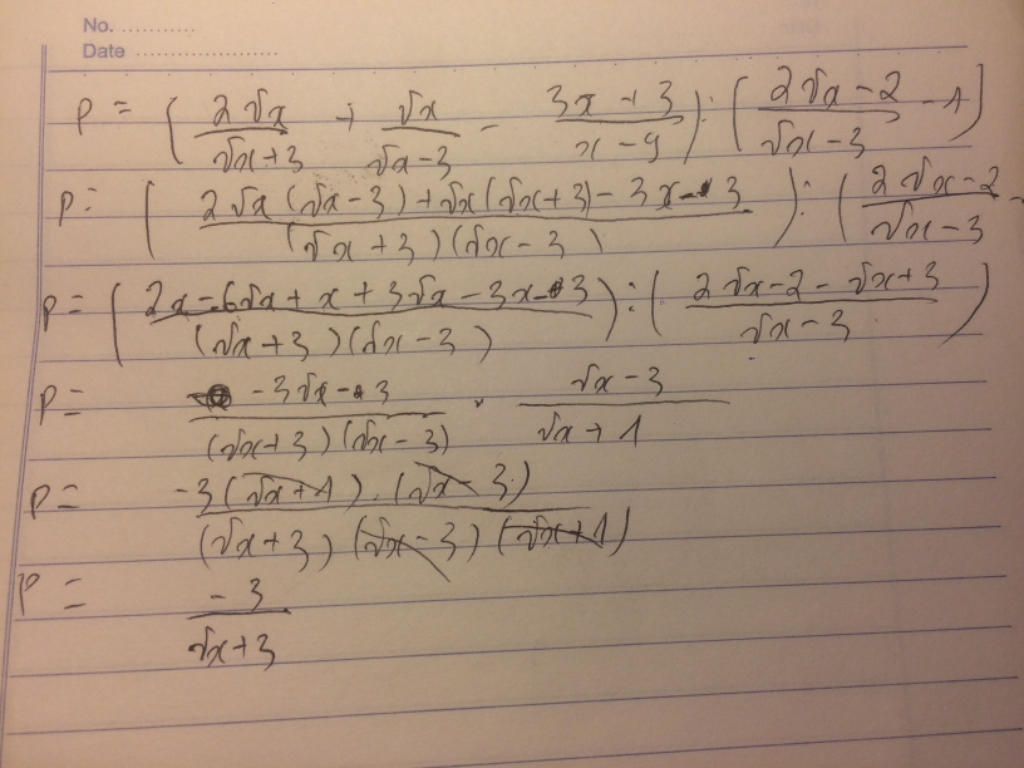 No. ...........
Date .....................
P = ( 2√x / (√x+3) + √x / (√x-3) - (3x+3) / (x-9) ) : ( (2√x-2) / (√x-3) - 1 )
P = ( (2√x (√x-3) + √x (√x+3) - 3x - 3) / ((√x+3)(√x-3)) ) : ( (2√x-2) / (√x-3) -
P = ( (2x - 6√x + x + 3√x - 3x - 3) / ((√x+3)(√x-3)) ) : ( (2√x-2 - √x+3) / (√x-3) )
P = (-3√x - 3) / ((√x+3)(√x-3)) . (√x-3) / (√x+1)
P = -3(√x+1).(√x-3) / ((√x+3)(√x-3)(√x+1))
P = -3 / (√x+3)